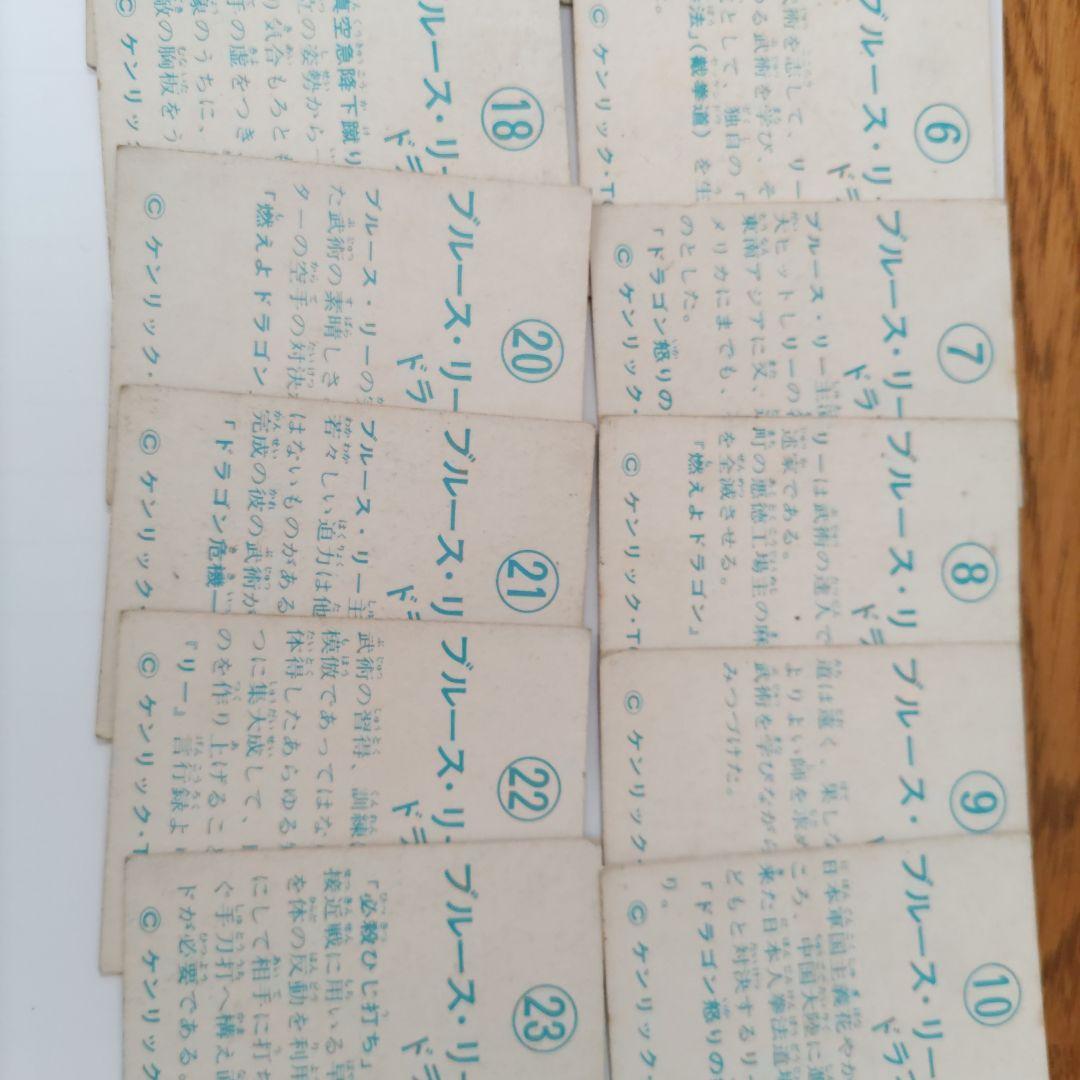 18
ブルース・リー
ドラ
真空急降下蹴り
立の姿勢から
り気合もろとも
手の虚をつき
象のうちに、
敵の胸板をう
© ケンリック・T
20
ブルース・リー
ドラ
ブルース・リーの
た武術の素晴しさ
ターの空手の対決
「燃えよドラゴン
© ケンリック・
21
ブルース・リ
ド
ブルース・リー主
若々しい迫力は他
はないものがある
完成の彼の武術が
「ドラゴン危機一
© ケンリック・
22
ブルース・リー
ドラ
武術の習得、訓練
模倣であってはな
体得したあらゆる
つに集大成して、
のを作り上げるこ
『リー』言行録よ
© ケンリック・T
23
ブルース・リー
ドラ
「必殺ひじ打ち」
接近戦に用いる
を体の反動を利用
にして相手に打
ぐ手刀打へ構え
ドが必要である。
© ケンリック
6
ブルース・リ
ド
武術を志して、リー
る武術を学び、そ
として、独自の「
拳法」(截拳道)を生
© ケンリック・T
7
ブルース・リー
ドラ
ブルース・リー主演
大ヒットしリーの名
東南アジアに又、
メリカにまでも、
のとした。
「ドラゴン怒りの
© ケンリック・
8
ブルース・リ
ド
リーは武術の達人で
述家である。
町の悪徳工場主の麻
を全滅させる。
『燃えよドラゴン』
© ケンリック・T
9
ブルース・
道は遠く、果しな
よりよい師を求が
武術を学びながら
みつづけた。
© ケンリック・T
10
ブルース・リー
ドラ
日本軍国主義花やか
ころ、中国大陸に進
来た日本人拳法道場
どもと対決するリ
「ドラゴン怒りの
り。
© ケンリック